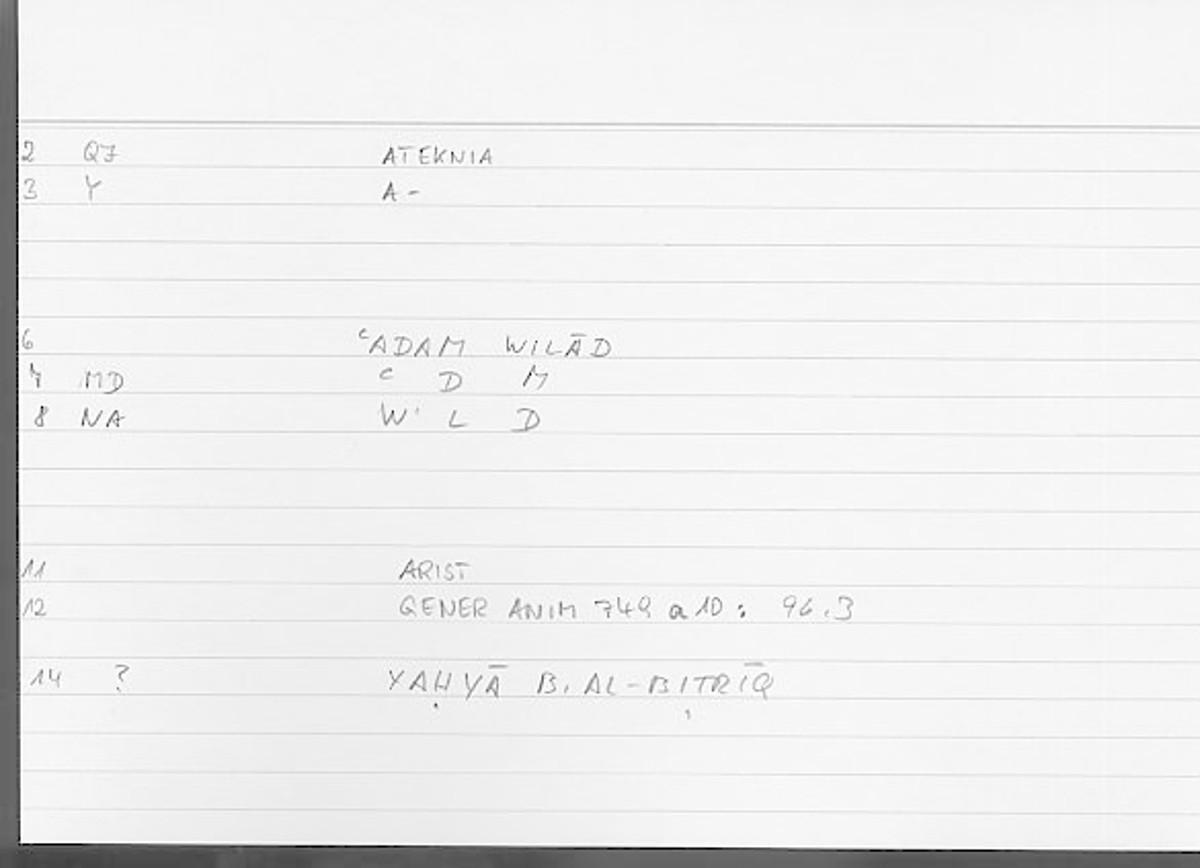 2 QF ATEKNIA
3 Y A-
6 ʿADAM WILĀD
7 MD ʿ D M
8 NA W L D
11 ARIST
12 GENER ANIM 749 a 10 : 96.3
14 ? YAḤYĀ B. AL-BIṬRĪQ